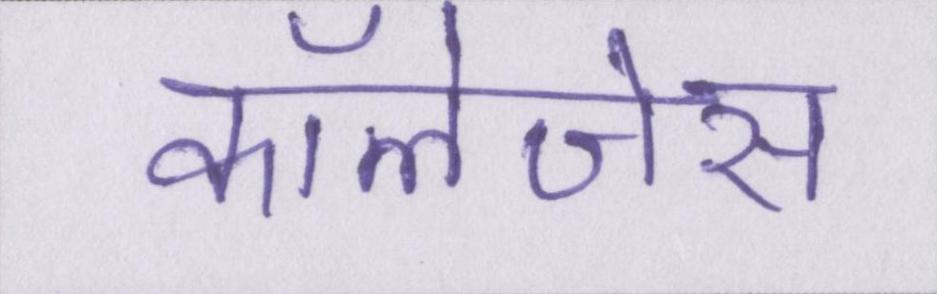 कॉलेजेस